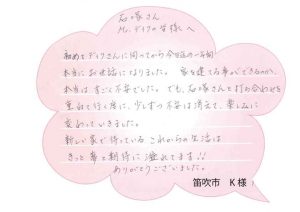 石塚さん
Mr.デイクの皆様へ
初めてデイクさんに伺ってから今日迄の一年間
本当にお世話になりました。家を建てる事ができるのか、
本当はすごく不安でした。でも、石塚さんと打ち合わせを
重ねて行く度に、少しずつ不安は消えて、楽しみに
変わっていきました。
新しい家で待っている これからの生活は
きっと夢と期待に溢れてます!!
ありがとうございました。
笛吹市 K様